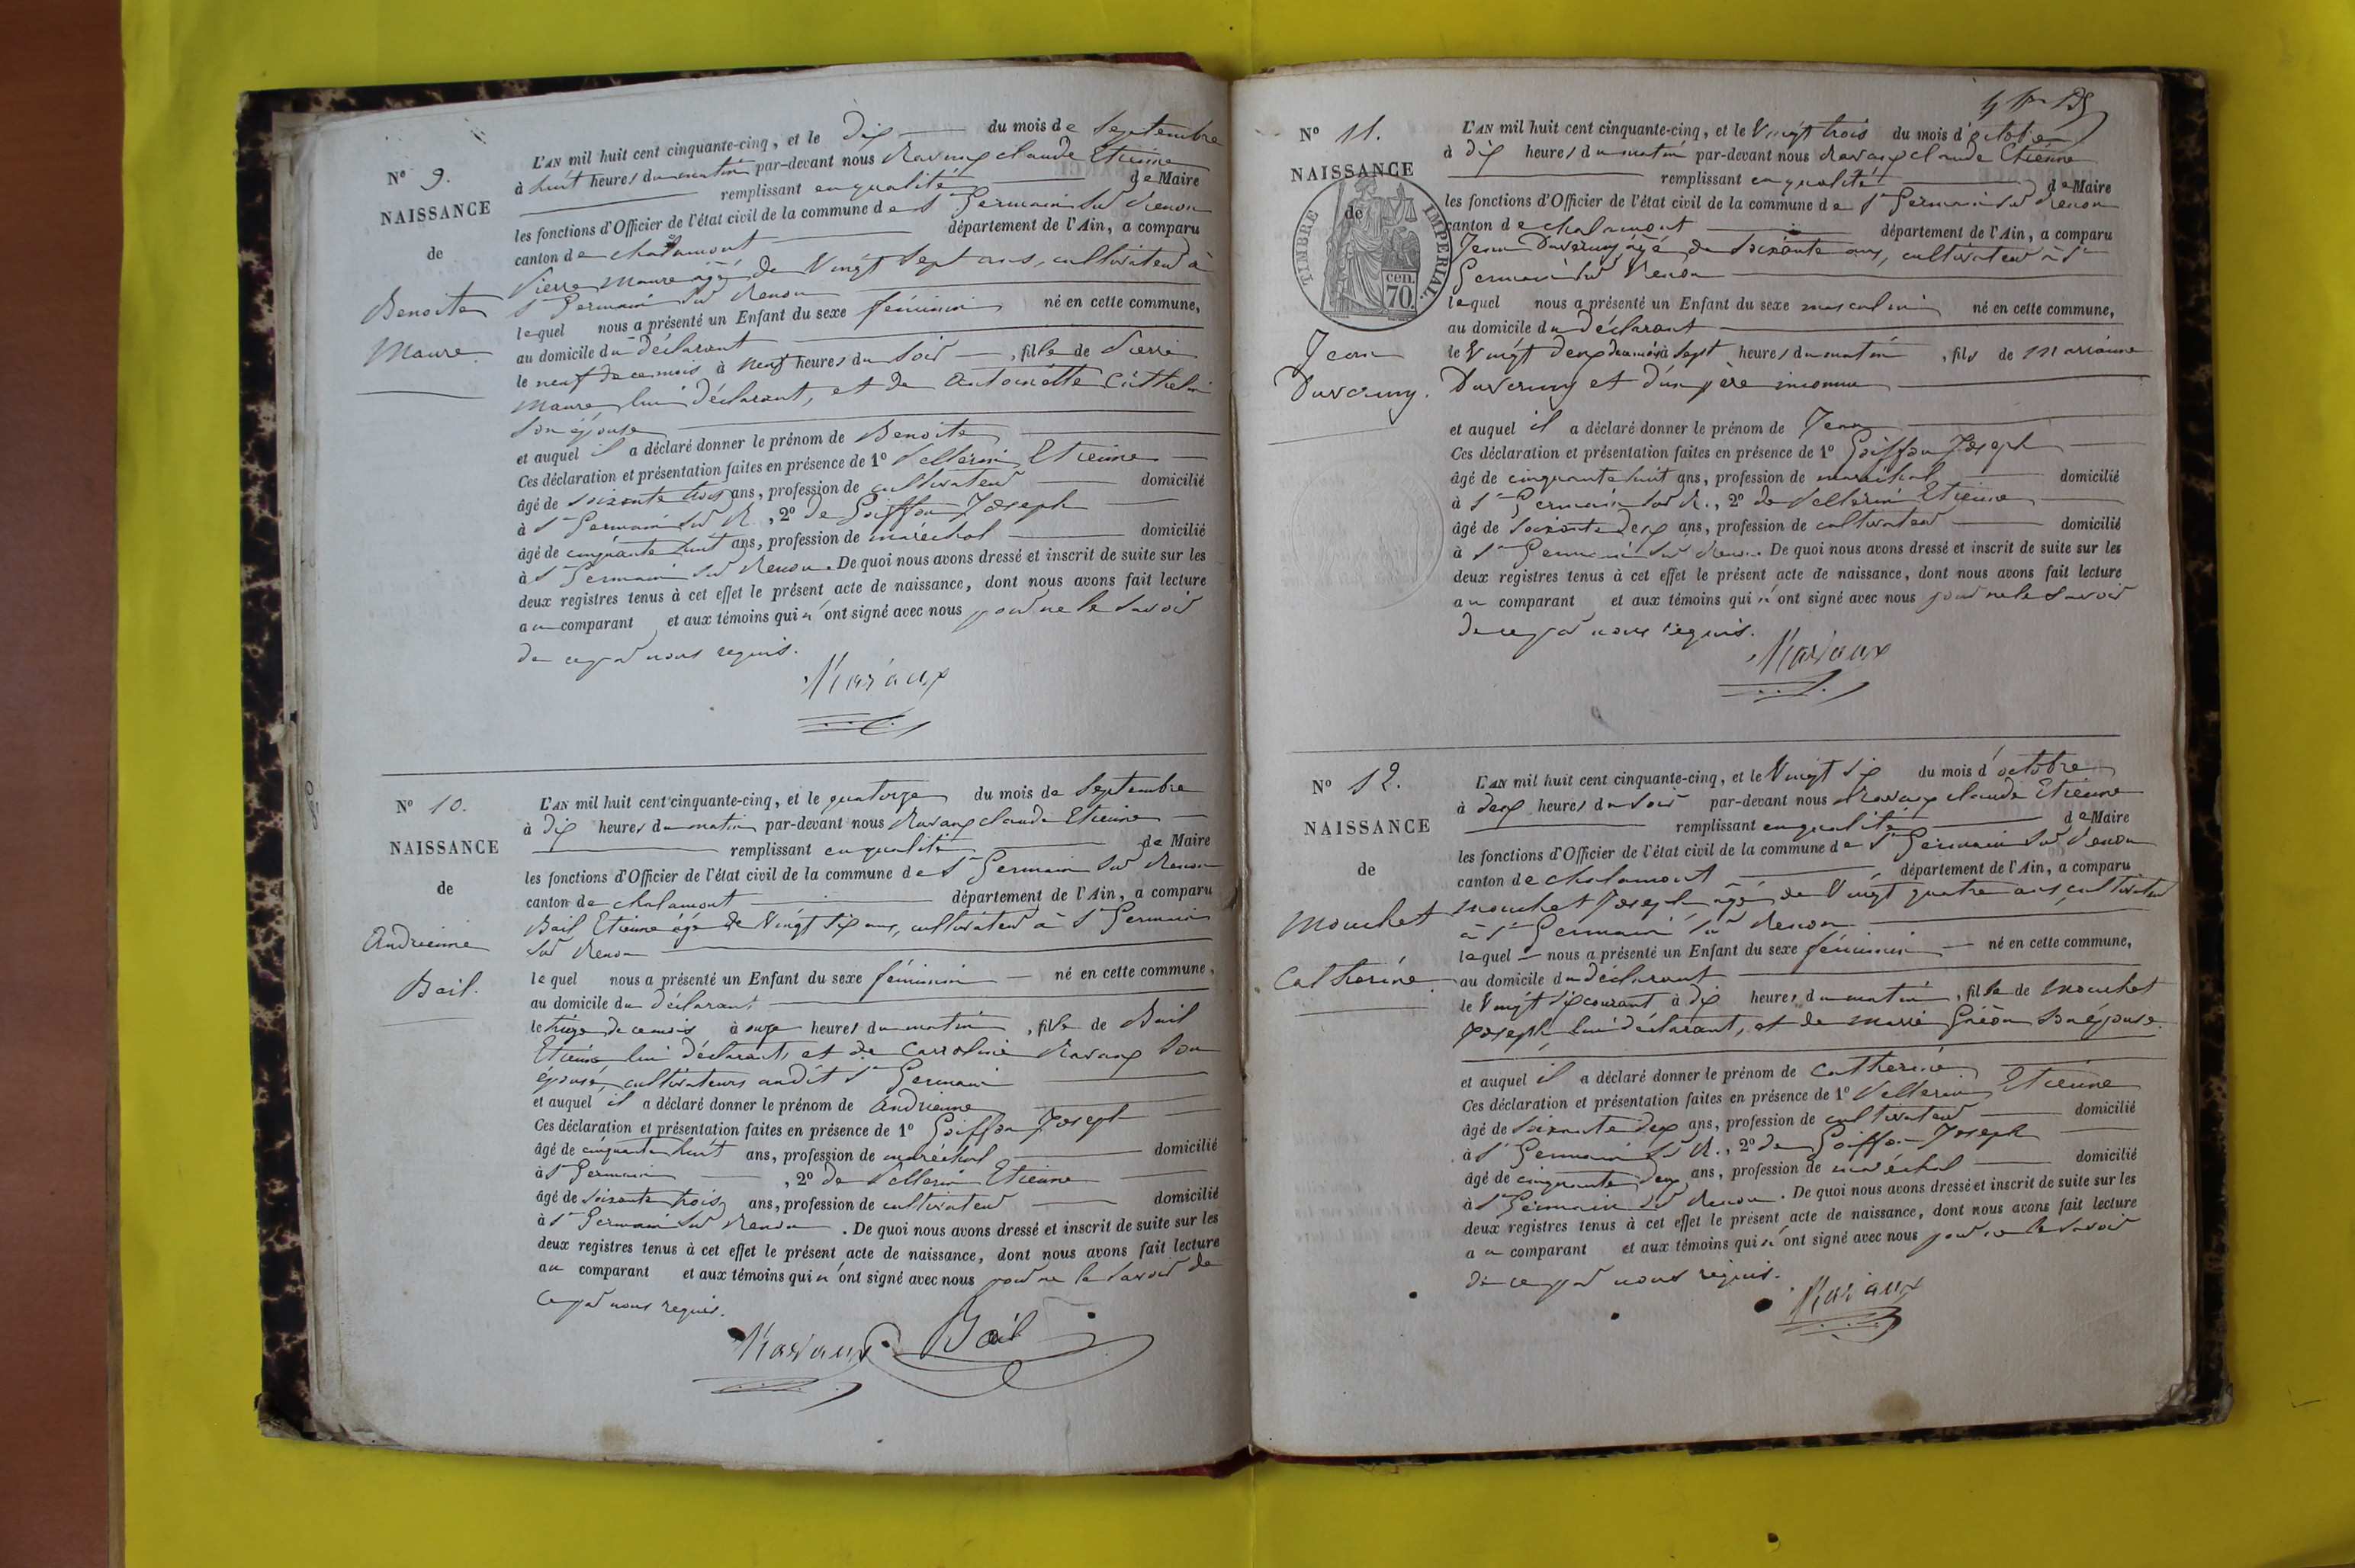 N° 9.
NAISSANCE
de
Benoite
Maure.
L'AN mil huit cent cinquante-cinq, et le dix du mois de Septembre
à huit heures du matin par-devant nous Ravaux Claude Etienne
remplissant en qualité de Maire
les fonctions d'Officier de l'état civil de la commune de St Germain sur Renon
canton de chalamont département de l'Ain, a comparu
Pierre Maure âgé de Vingt Sept ans, cultivateur à
St Germain sur Renon
lequel nous a présenté un Enfant du sexe féminin né en cette commune,
au domicile du déclarant
le neuf de ce mois à neuf heures du soir, fille de Pierre
Maure, lui déclarant, et de antoinette
son épouse
et auquel il a déclaré donner le prénom de Benoite
Ces déclaration et présentation faites en présence de 1° Pellerin Etienne
âgé de soixante trois ans, profession de cultivateur domicilié
à St Germain sur R., 2° de Goiffon Joseph
âgé de cinquante huit ans, profession de maréchal domicilié
à St Germain sur Renon. De quoi nous avons dressé et inscrit de suite sur les
deux registres tenus à cet effet le présent acte de naissance, dont nous avons fait lecture
au comparant et aux témoins qui n'ont signé avec nous pour ne le savoir
de ce par nous requis.
Ravaux
N° 10.
NAISSANCE
de
Andrienne
Bail.
L'AN mil huit cent cinquante-cinq, et le quatorze du mois de Septembre
à dix heures du matin par-devant nous Ravaux Claude Etienne
remplissant en qualité de Maire
les fonctions d'Officier de l'état civil de la commune de St Germain sur Renon
canton de chalamont département de l'Ain, a comparu
Bail Etienne âgé de Vingt six ans, cultivateur à St Germain
sur Renon
lequel nous a présenté un Enfant du sexe féminin né en cette commune,
au domicile du déclarant
le treize de ce mois à onze heures du matin, fille de Bail
Etienne lui déclarant, et de Carroline Ravaux son
épouse, cultivateurs audit St Germain
et auquel il a déclaré donner le prénom de Andrienne
Ces déclaration et présentation faites en présence de 1° Goiffon Joseph
âgé de cinquante huit ans, profession de maréchal domicilié
à St Germain, 2° de Pellerin Etienne
âgé de soixante trois ans, profession de cultivateur domicilié
à St Germain sur Renon. De quoi nous avons dressé et inscrit de suite sur les
deux registres tenus à cet effet le présent acte de naissance, dont nous avons fait lecture
au comparant et aux témoins qui n'ont signé avec nous pour ne le savoir de
ce par nous requis.
Ravaux Bail
N° 11.
NAISSANCE
de
TIMBRE IMPERIAL
cen.
70
Jean
Duverny.
L'AN mil huit cent cinquante-cinq, et le Vingt trois du mois d'octobre
à dix heures du matin par-devant nous Ravaux Claude Etienne
remplissant en qualité de Maire
les fonctions d'Officier de l'état civil de la commune de St Germain sur Renon
canton de chalamont département de l'Ain, a comparu
Jean Duverny âgé de soixante ans, cultivateur à St
Germain sur Renon
lequel nous a présenté un Enfant du sexe masculin né en cette commune,
au domicile du déclarant
le Vingt deux du mois à sept heures du matin, fils de Marianne
Duverny et d'un père inconnu
et auquel il a déclaré donner le prénom de Jean
Ces déclaration et présentation faites en présence de 1° Goiffon Joseph
âgé de cinquante huit ans, profession de maréchal domicilié
à St Germain sur R., 2° de Pellerin Etienne
âgé de soixante deux ans, profession de cultivateur domicilié
à St Germain sur Renon. De quoi nous avons dressé et inscrit de suite sur les
deux registres tenus à cet effet le présent acte de naissance, dont nous avons fait lecture
au comparant et aux témoins qui n'ont signé avec nous pour ne le savoir
de ce par nous requis.
Ravaux
N° 12.
NAISSANCE
de
Mouchet
Catherine.
L'AN mil huit cent cinquante-cinq, et le Vingt six du mois d'octobre
à deux heures du soir par-devant nous Ravaux Claude Etienne
remplissant en qualité de Maire
les fonctions d'Officier de l'état civil de la commune de St Germain sur Renon
canton de chalamont département de l'Ain, a comparu
Mouchet Joseph âgé de Vingt quatre ans, cultivateur
à St Germain sur Renon
lequel nous a présenté un Enfant du sexe féminin né en cette commune,
au domicile du déclarant
le Vingt six courant à dix heures du matin, fille de Mouchet
Joseph lui déclarant, et de Marie son épouse.
et auquel il a déclaré donner le prénom de Catherine
Ces déclaration et présentation faites en présence de 1° Pellerin Etienne
âgé de soixante deux ans, profession de cultivateur domicilié
à St Germain sur R., 2° de Goiffon Joseph
âgé de cinquante deux ans, profession de maréchal domicilié
à St Germain sur Renon. De quoi nous avons dressé et inscrit de suite sur les
deux registres tenus à cet effet le présent acte de naissance, dont nous avons fait lecture
au comparant et aux témoins qui n'ont signé avec nous pour ne le savoir
de ce par nous requis.
Ravaux